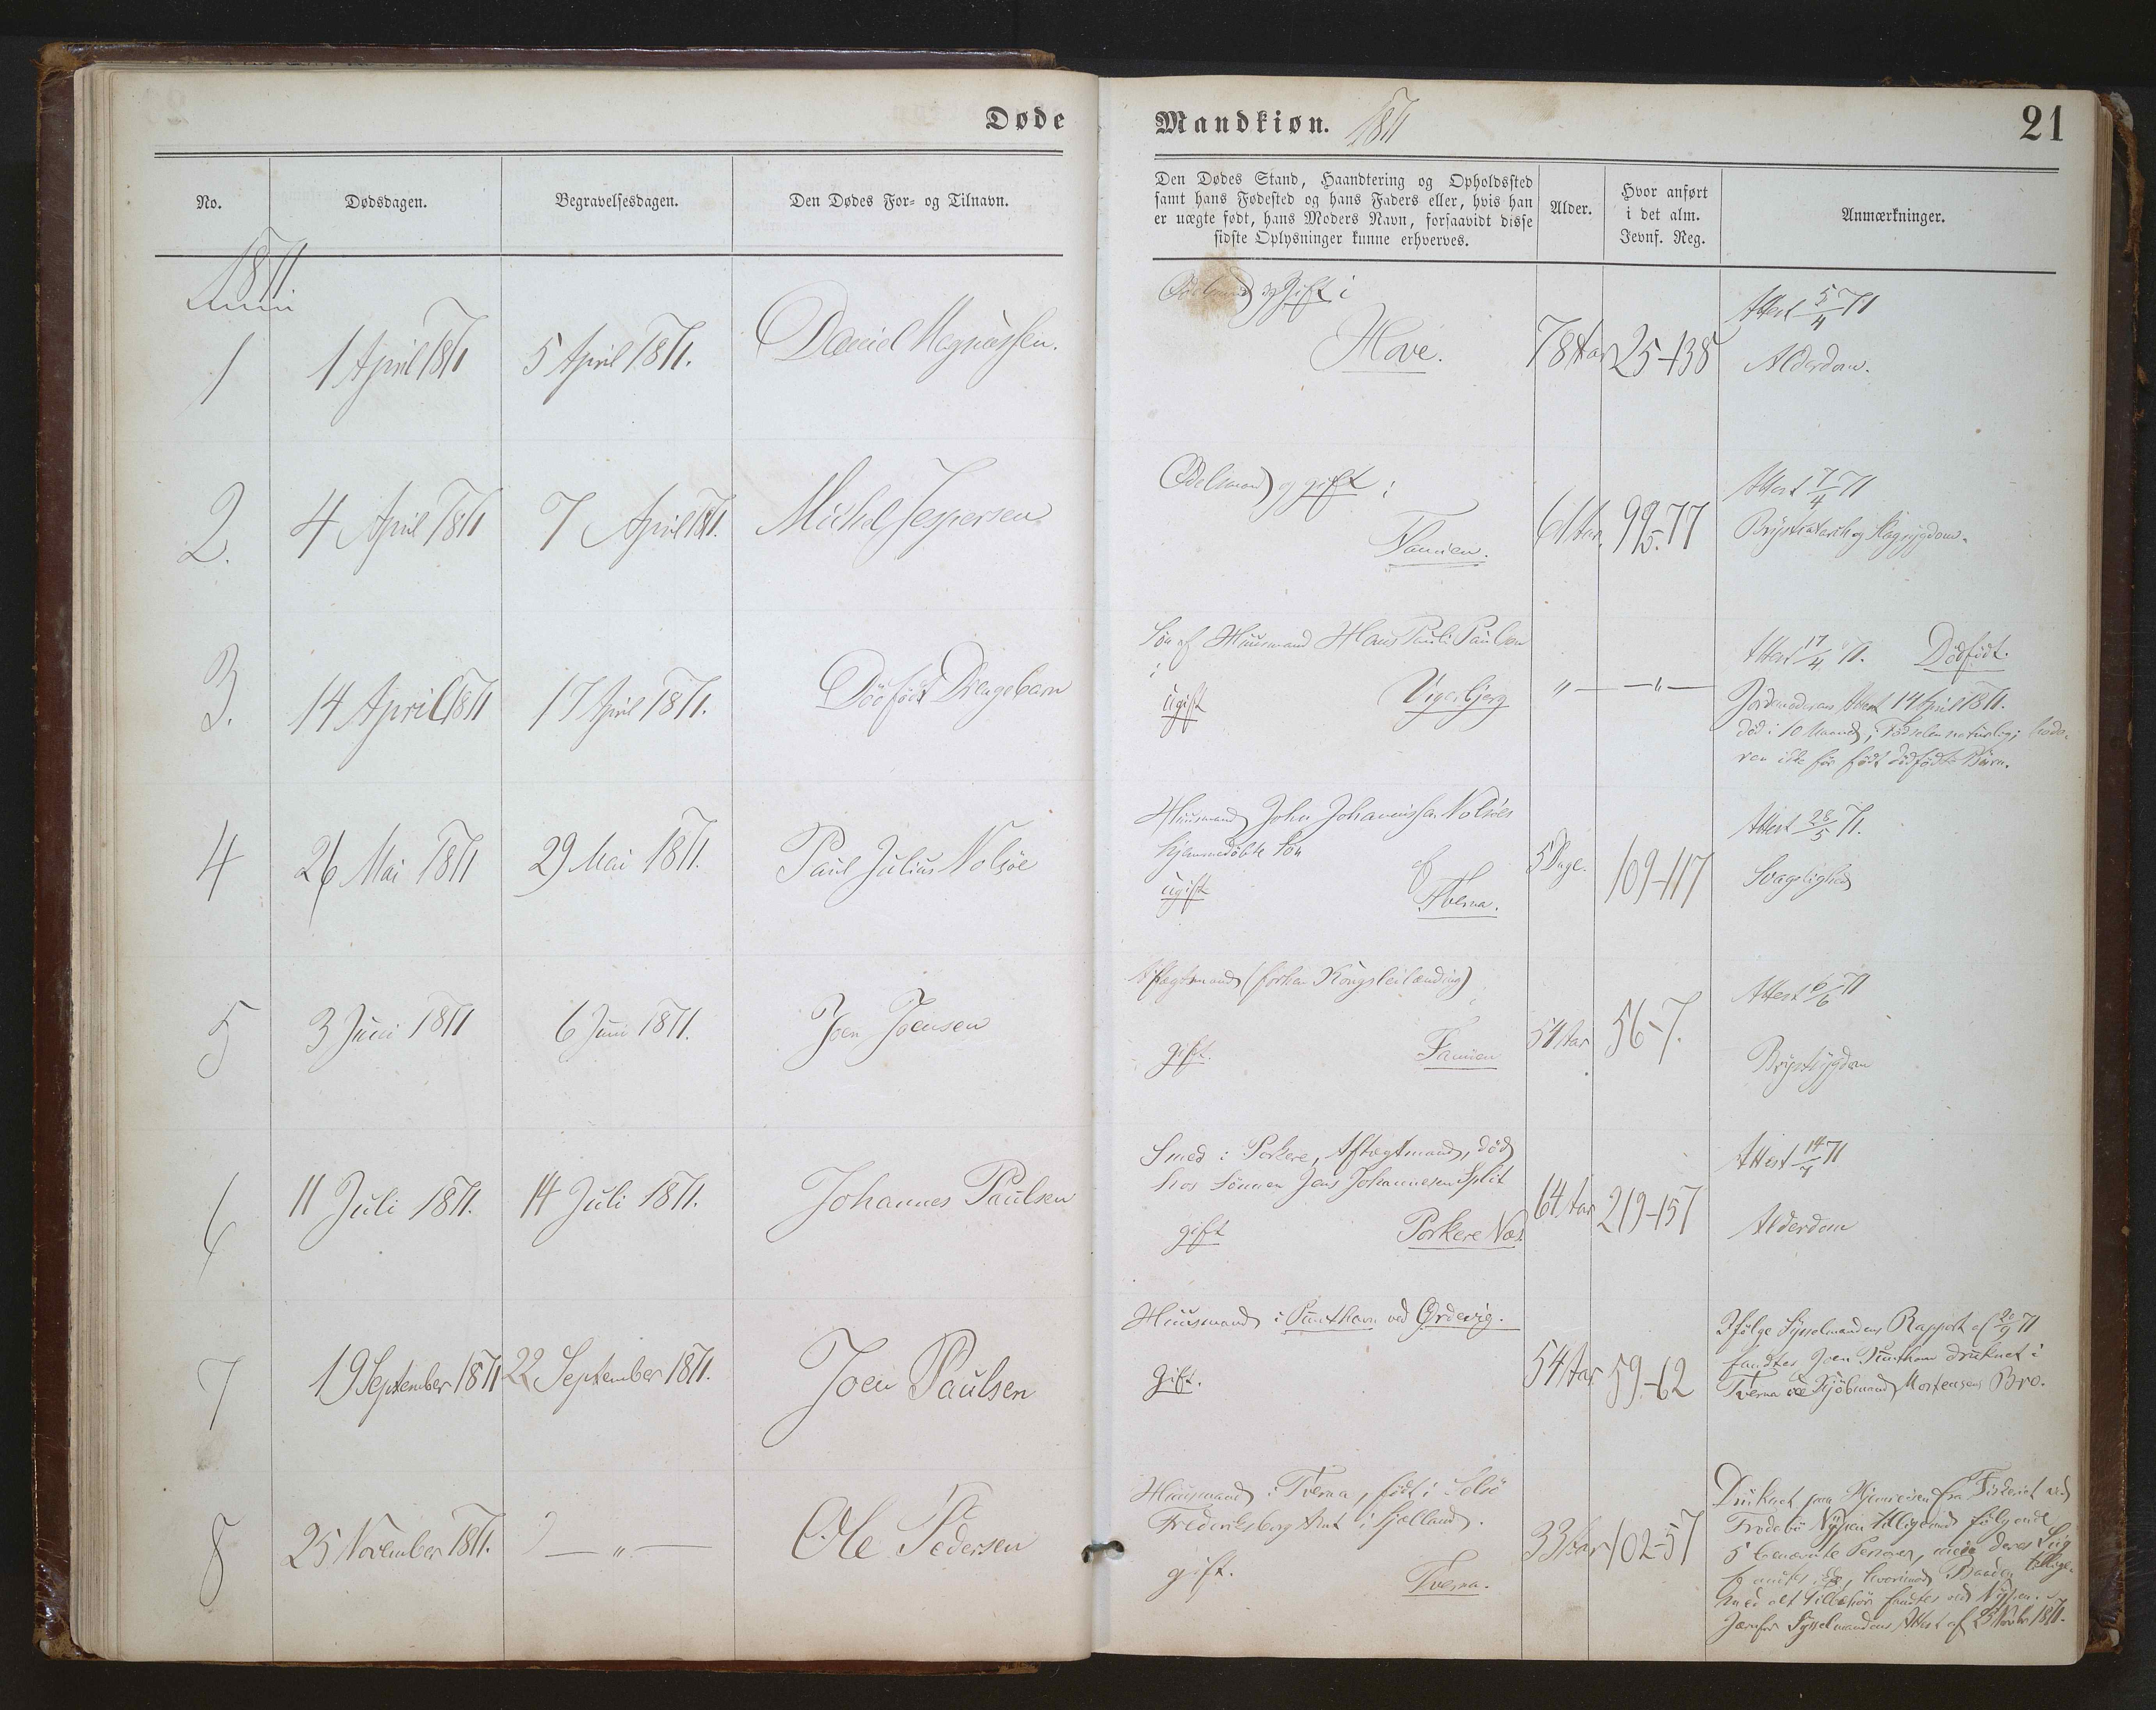 Døde
Mandkiøn. 1871
21
No.
Dødsdagen.
Begravelsesdagen.
Den Dødes For- og Tilnavn.
Den Dødes Stand, Haandtering og Opholdssted
samt hans Fødested og hans Faders eller, hvis han
er uægte født, hans Moders Navn, forsaavidt disse
sidste Oplysninger kunne erhverves.
Alder.
Hvor anført
i det alm.
Jevnf. Reg.
Anmærkninger.
1871
1
1 April 1871
5 April 1871.
Daniel Magnussen.
Odelsmand og gift i
Hove.
78 Aar
25-138
Attest 5/4 71
Alderdom.
2.
4 April 1871
7 April 1871.
Michel Jespersen
Odelsmand og gift i
Famien.
61 Aar.
99-77
Attest 7/4 71
Brystkatarrh og Slagsygdom.
3.
14 April 1871
17 April 1871.
Dödfödt Drengebarn
Sön af Huusmand Hans Pauli Paulsen
i
ugift
Vigerbjerg
" —
— " —
Attest 17/4 71. Dödfödt.
Jordemoderens Attest 14 April 1871.
död i 10 Maaned, Födselen naturlig;
ren ikke för födt dödfödte Börn.
4
26 Mai 1871
29 Mai 1871.
Paul Julius Nolsöe
Huusmand John Johannissen Nolsöes
hjemmedöbte Sön
ugift
af
Tværaa.
5 Dage.
109-117
Attest 28/5 71.
Svagelighed
5
3 Juni 1871
6 Juni 1871.
Joen Joensen
Aftægtsmand (forhen Kongsleilænding)
gift.
Famien
54 Aar
56-7.
Attest 6/6 71
Brystsygdom
6
11 Juli 1871.
14 Juli 1871.
Johannes Paulsen
Smed i Porkere, Aftægtmand, död
hos Sönnen Jens Johannesen Split
gift
Porkere Næs
64 Aar
219-157
Attest 14/7 71
Alderdom
7
19 September 1871
22 September 1871.
Joen Paulsen
Huusmand i Punthavn ved Ördevig.
gift.
54 Aar
59-62
Ifølge Sysselmandens Rapport af 20/9 71
fandtes Joen Punthavn druknet i
Tværaa ved Kjöbmand Mortensens Bro.
8
25 November 1871.
— " —
Ole Pedersen
Huusmand i Tværaa, födt i
Frederiksborg Amt i Sjælland.
gift.
Tværaa.
33 Aar
102-57
Druknet paa Hjemreisen fra Fiskeriet ved
Frodebö Nypen tilligemed fölgende
5 benævnte Personer, men deres Liig
hvorimod Baaden tillige-
med alt tilbehör fandtes ved Nypen.
Jævnför Sysselmandens Attest af 25 Novbr 1871.